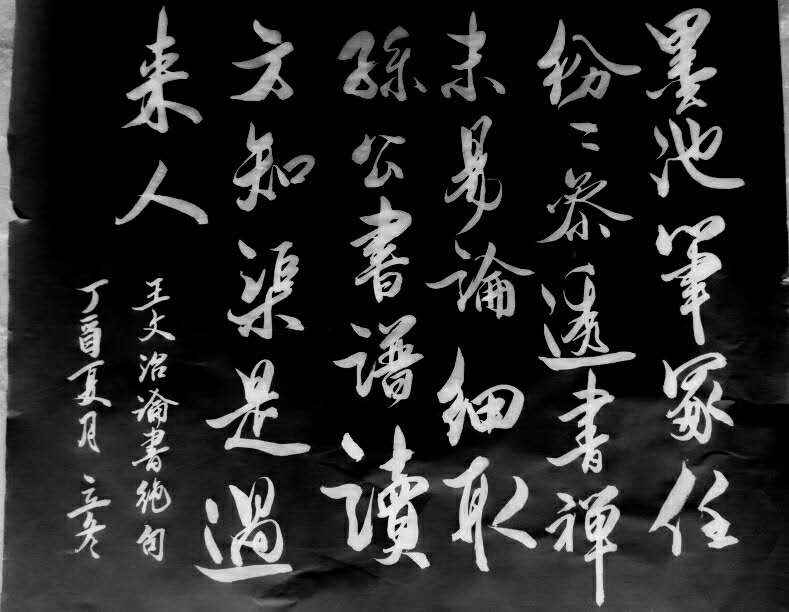 墨池筆冢任
紛〻参透書禅
未易論細取
孫公書譜讀
方知渠是過
来人
王文治論書絶句
丁酉夏月立冬